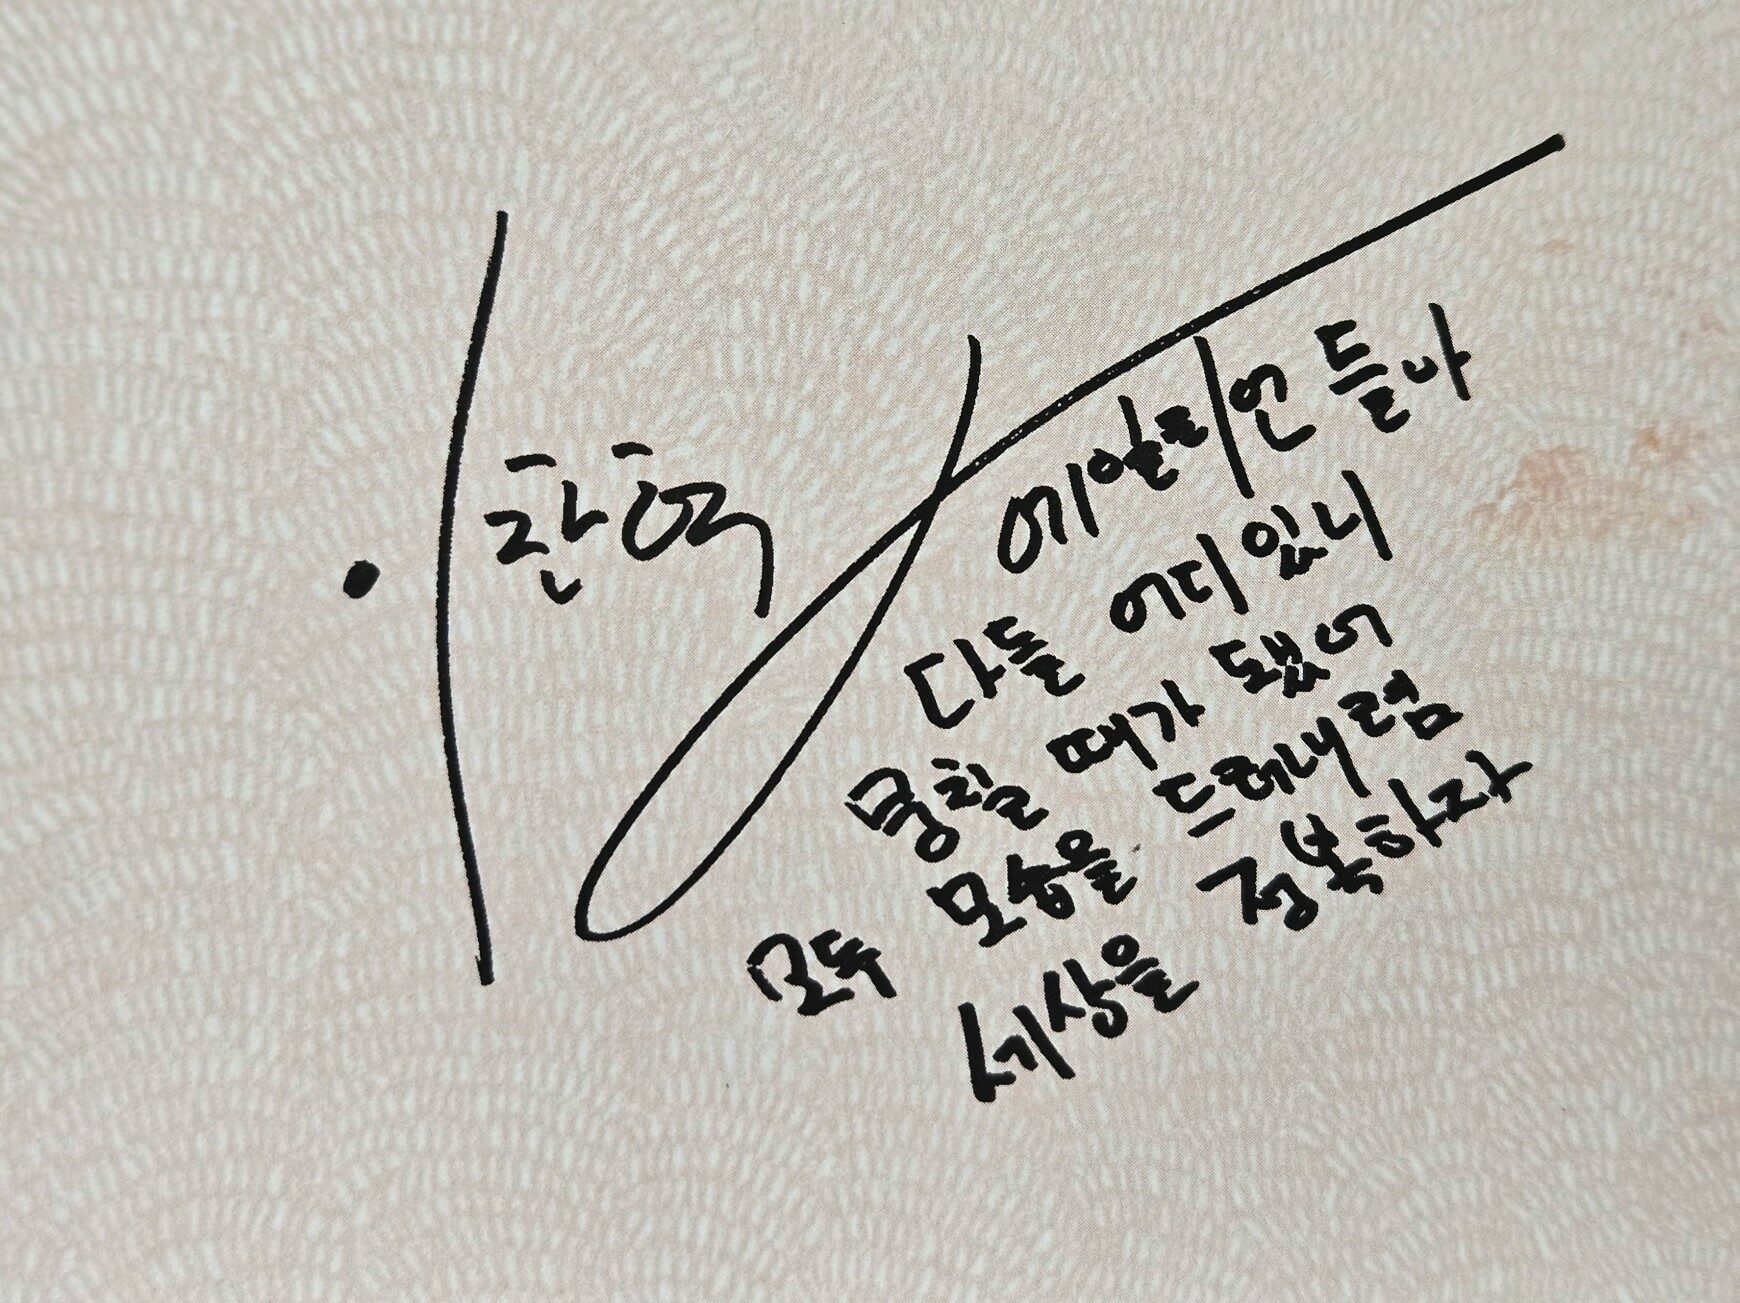 이찬혁
에일리언들아
다들 어디 있니
뭉칠 때가 됐어
모두 모습을 드러내렴
세상을 정복하자